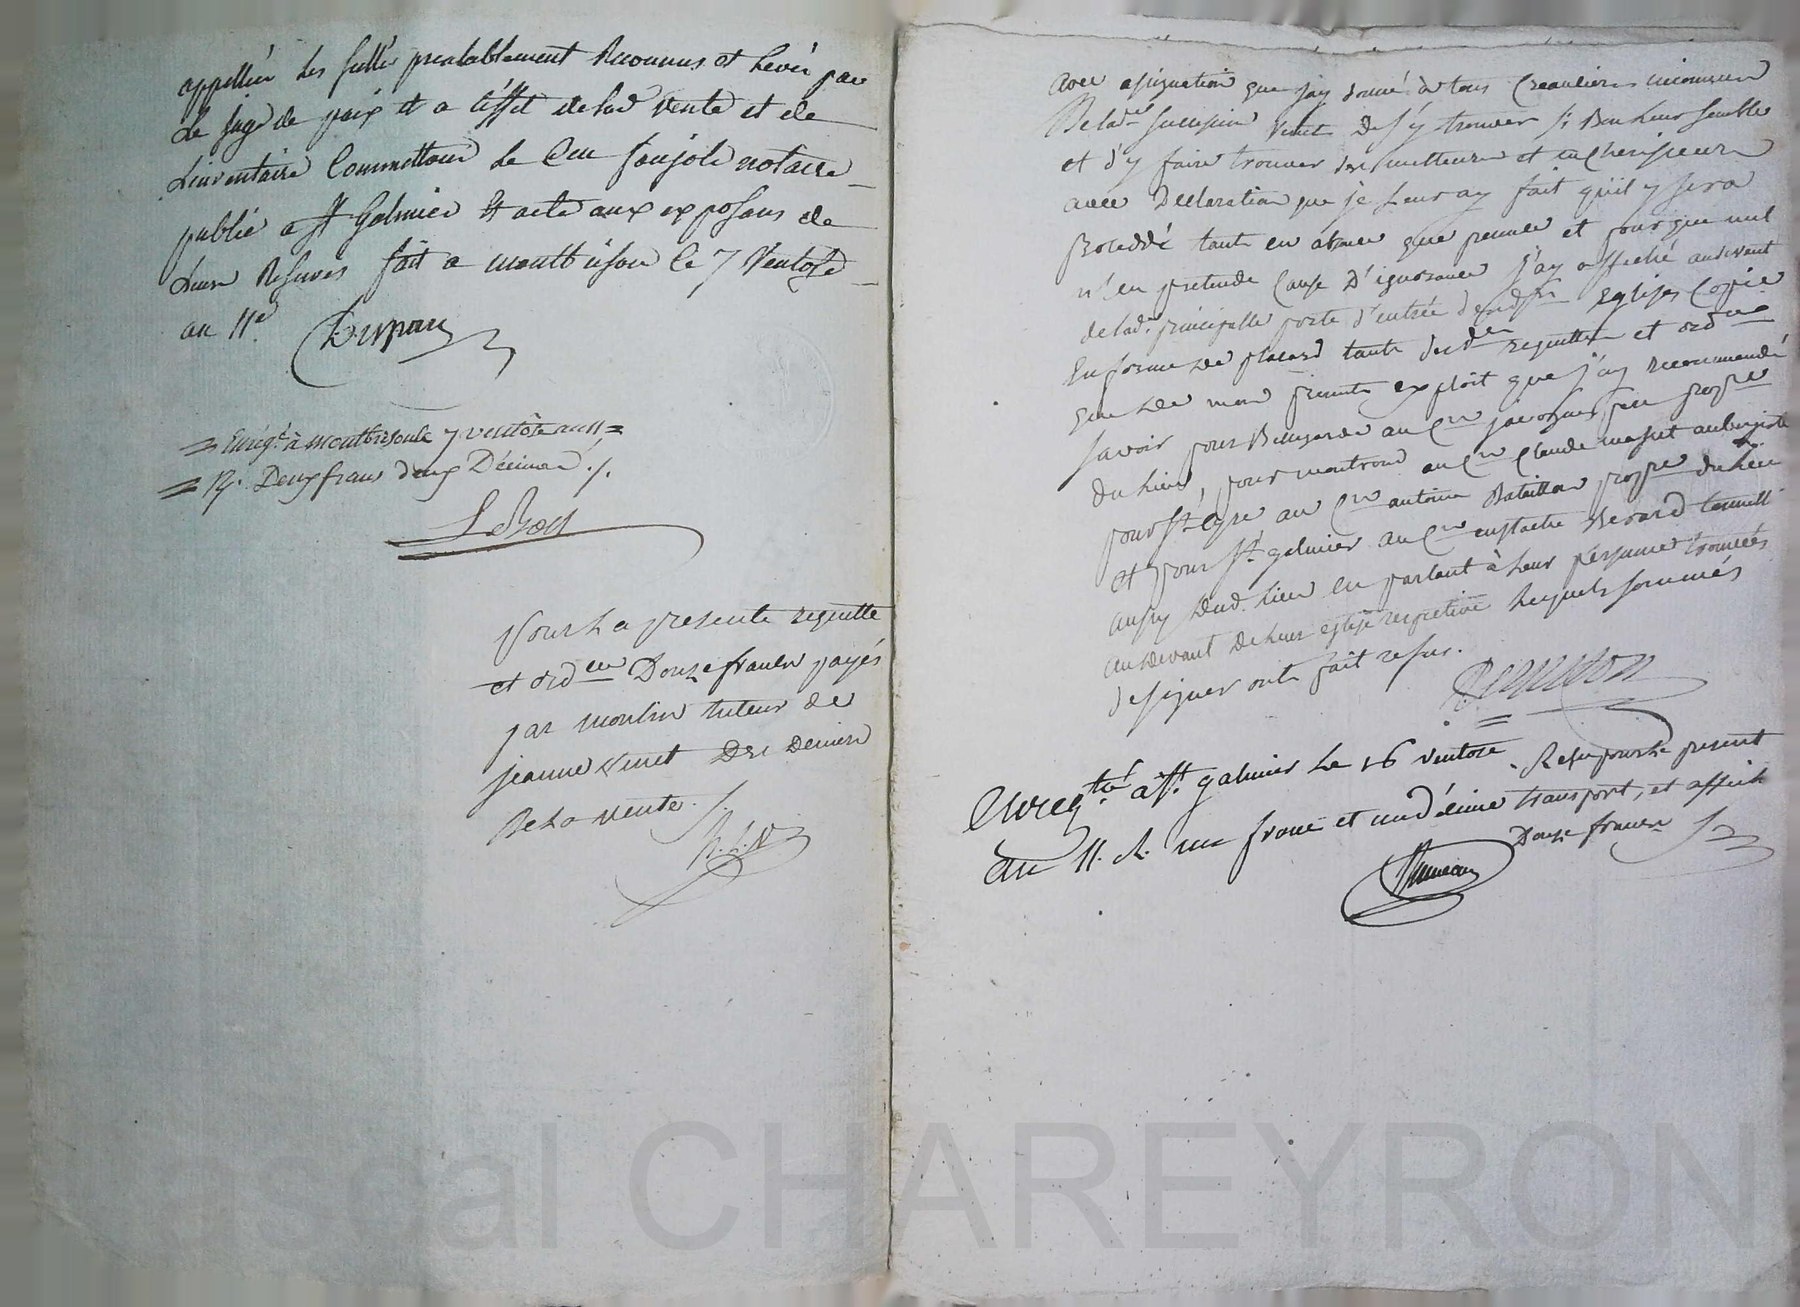 appellées les scellés prealablement Reconnus et Levés par
Le juge de paix et a l'effet de lad vente et de
Linventaire Commettons Le Cen notaire
publié a St Galmier & acte aux exposans de
Leurs Reserves fait a montbrison le 7 Ventose
an 11e
Enregt. à montbrison le 7 ventôse an 11
R. Deux francs deux Décimes
LeBon
pour La presente requette
et ordce Douze francs payés
par moulin tuteur de
jeanne Vinet Des Deniers
De La vente
avec assignation que j'ay donné a tous Creanciers inconnus
De lad. succession Vinet De s'y trouver si Bon Leur semble
et d'y faire trouver des metteurs et encherisseurs
avec Declaration que je Leur ay fait qu'il y sera
proceddé tant en absence que presence et pour que nul
n'en pretende Cause D'ignorance j'ay affiché audevant
de lad. principalle porte d'entrée eglises Copie
En forme de placard tant desd. requette et ordce
que de mon present exploit que j'ay recommandé
savoir pour Bellegarde au Cen propre
Du Lieu, pour montrond au Cen Claude aubergiste
pour St Cyre au Cen antoine Bataillon propre du Lieu
et pour St galmier au Cen eustache
aussy dud. Lieu en parlant à Leur personne trouvés
audevant De Leur eglise respective Lesquels sommés
de signer ont fait refus.
Enregtré a St. galmier Le 16 ventose
an 11. R. un franc et un décime
Reçu pour Le present
transport, et affiche
Douze francs
ascal CHAREYRON